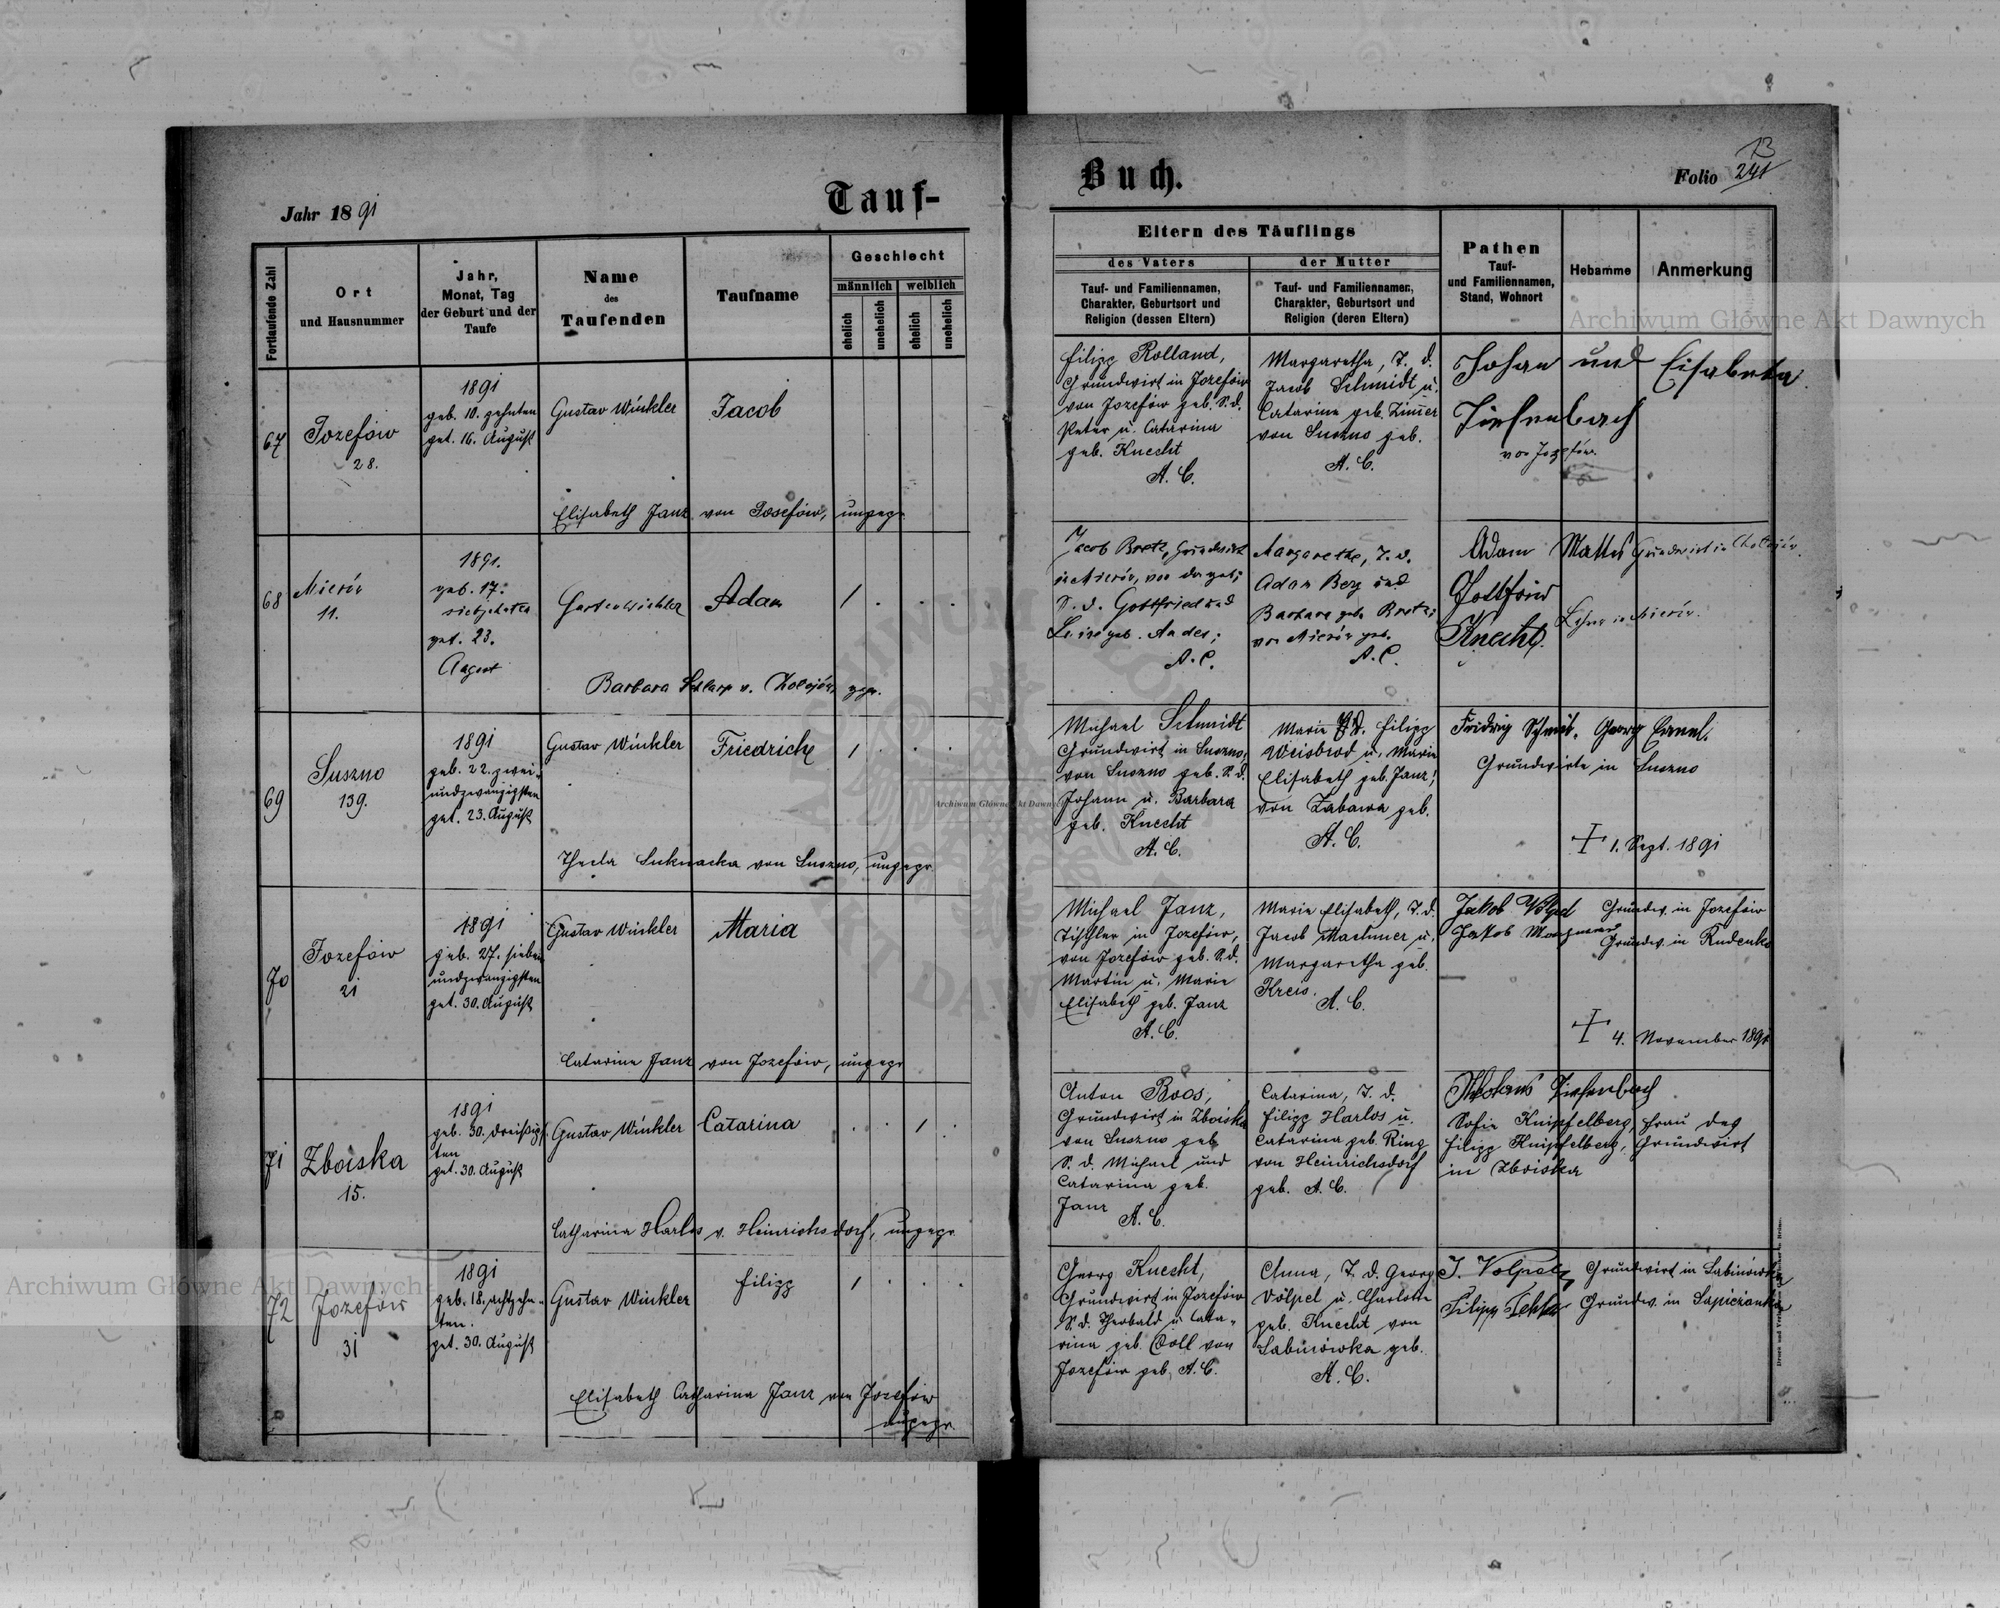 Jahr 1891
Tauf-
Fortlaufende Zahl
Ort
und Hausnummer
Jahr,
Monat, Tag
der Geburt und der
Taufe
Name
des
Taufenden
Taufname
Geschlecht
männlich
weiblich
ehelich
unehelich
ehelich
unehelich
67
Jozefów
28.
1891
geb. 10. zehnten
get. 16. August
Gustav Winkler
Jacob
Elisabeth Janz von Josefów, ungepr.
68
Mierów
11.
1891.
geb. 17.
get. 23.
August
Adam
Barbara v.
69
Suszno
139.
1891
geb. 22. zwei-
undzwanzigsten
get. 23. August
Gustav Winkler
Friedrich
/ . . .
Thecla von Suszno, ungepr.
70
Jozefów
21
1891
geb. 27. sieben
undzwanzigsten
get. 30. August
Gustav Winkler
Maria
Catarina Janz von Jozefów, ungepr.
71
Zboiska
15.
1891
geb. 30. dreißigs-
ten
get. 30. August
Gustav Winkler
Catarina
. . / .
Catharina Harlos v. Heinrichsdorf, ungepr.
72
Jozefów
31
1891
geb. 18. achtzehn-
ten.
get. 30. August
Gustav Winkler
Filipp
/ . . .
Elisabeth Catharina Janz von Jozefów
ungepr.
Buch.
Folio 241
13
Eltern des Täuflings
des Vaters
Tauf- und Familiennamen,
Charakter, Geburtsort und
Religion (dessen Eltern)
der Mutter
Tauf- und Familiennamen,
Charakter, Geburtsort und
Religion (deren Eltern)
Pathen
Tauf-
und Familiennamen,
Stand, Wohnort
Hebamme
Anmerkung
Filipp Rolland,
Grundwirt in Jozefów
von Jozefów geb. S. d.
Peter u. Catarina
geb. Knecht
A. C.
Margaretha, T. d.
Jacob Schmidt u.
Catarina geb.
von Suszno geb.
A. C.
Johan und
von Jozefów.
Jacob Bretz, Grundwirt
in Mierów, von da geb.;
S. d. Gottfried und
geb.
A. C.
Margarethe, T. d.
Adam Berg und
Barbara geb. Bretz;
von Mierów geb.
A. C.
Adam Mattes Grundwirt in
Knecht.
in Mierów.
Michael Schmidt
Grundwirt in Suszno,
von Suszno geb. S. d.
Johann u. Barbara
geb. Knecht
A. C.
Marie T. d. Filipp
Weisbrod u. Marie
Elisabeth geb. Janz;
von Zabawa geb.
A. C.
Georg
Grundwirte in Suszno
1. Sept. 1891
Michael Janz,
Tischler in Jozefów,
von Jozefów geb. S. d.
Martin u. Marie
Elisabeth geb. Janz
A. C.
Marie Elisabeth, T. d.
Jacob Machmer u.
Margaretha geb.
Kreis.
A. C.
Jakob Völpel Grundw. in Jozefów
Jakob
Grundw. in Rudenko
4. November 1891
Anton Boos,
Grundwirt in Zboiska
von Suszno geb.
S. d. Michael und
Catarina geb.
Janz
A. C.
Catarina, T. d.
Filipp Harlos u.
Catarina geb. Ring
von Heinrichsdorf
geb. A. C.
Sofie Knipfelberg, Frau des
Filipp Knipfelberg, Grundwirt
in Zboiska
Georg Knecht,
Grundwirt in Jozefów
S. d. Theobald u. Cata-
rina geb. von
Jozefów geb. A. C.
Anna, T. d. Georg
Völpel u. Charlotte
geb. Knecht von
Sabinówka geb.
A. C.
Grundwirt in Sabinówka
Filipp Grundw. in Sapiezanka
Archiwum Główne Akt Dawnych
Archiwum Główne Akt Dawnych
Archiwum Główne Akt Dawnych